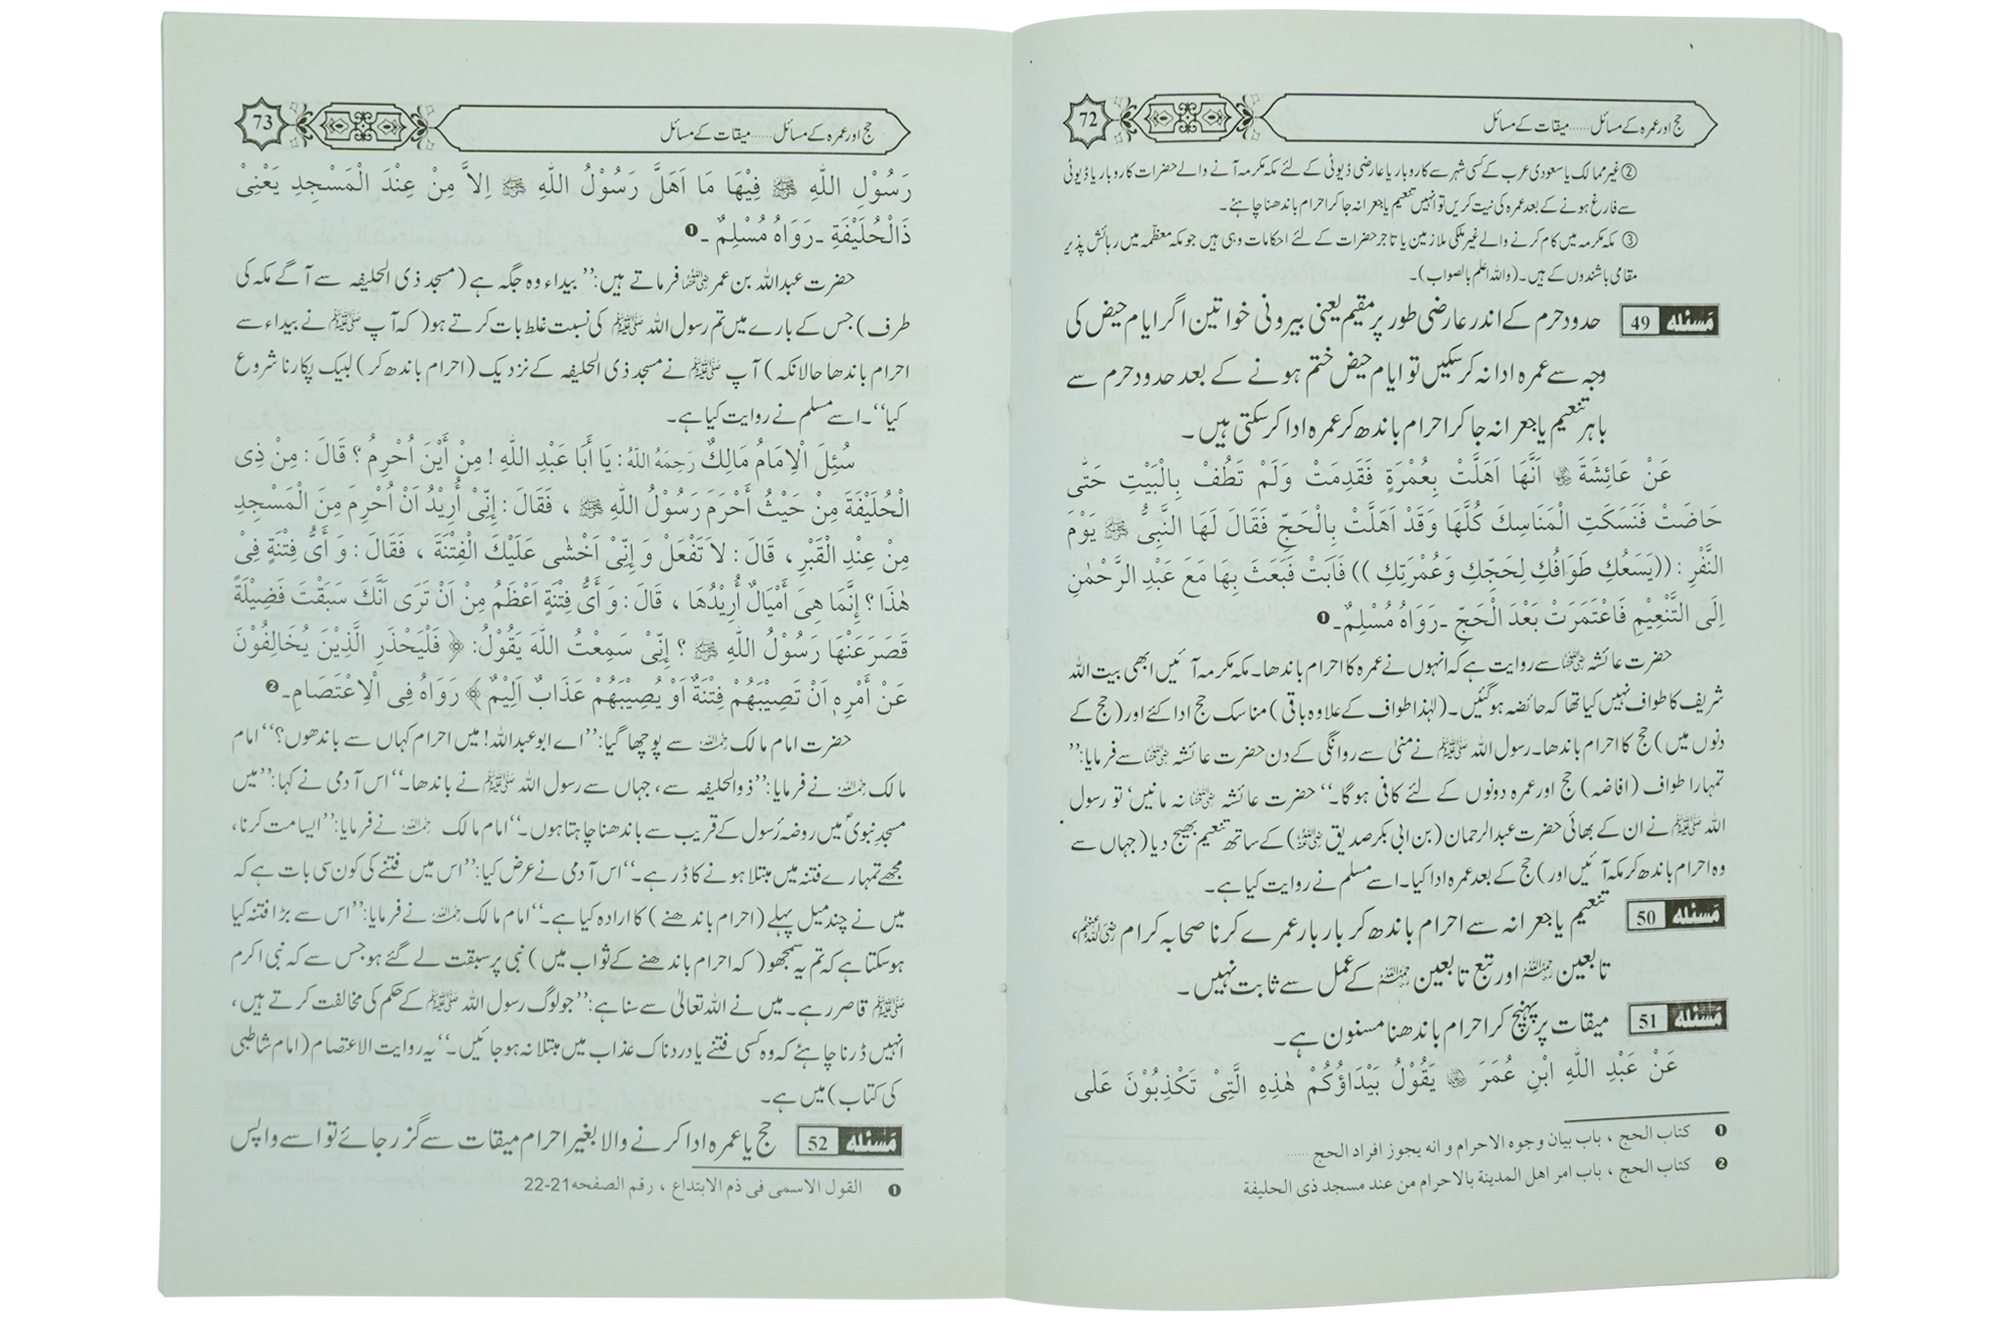 حج اور عمرہ کے مسائل ...... میقات کے مسائل
72
② غیر ممالک یا سعودی عرب کے کسی شہر سے کاروبار یا عارضی ڈیوٹی کے لئے مکہ مکرمہ آنے والے حضرات کاروبار یا ڈیوٹی
سے فارغ ہونے کے بعد عمرہ کی نیت کریں تو انہیں تنعیم یا جعرانہ جا کر احرام باندھنا چاہئے۔
③ مکہ مکرمہ میں کام کرنے والے غیر ملکی ملازمین یا تاجر حضرات کے لئے احکامات وہی ہیں جو مکہ معظمہ میں رہائش پذیر
مقامی باشندوں کے ہیں۔ (واللہ اعلم بالصواب)۔
مَسئله 49 حدود حرم کے اندر عارضی طور پر مقیم یعنی بیرونی خواتین اگر ایام حیض کی
وجہ سے عمرہ ادا نہ کر سکیں تو ایام حیض ختم ہونے کے بعد حدود حرم سے
باہر تنعیم یا جعرانہ جا کر احرام باندھ کر عمرہ ادا کر سکتی ہیں۔
عَنْ عَائِشَةَ رضی اللہ عنہا اَنَّهَا اَهَلَّتْ بِعُمْرَةٍ فَقَدِمَتْ وَلَمْ تَطُفْ بِالْبَيْتِ حَتّٰى
حَاضَتْ فَنَسَكَتِ الْمَنَاسِكَ كُلَّهَا وَقَدْ اَهَلَّتْ بِالْحَجِّ فَقَالَ لَهَا النَّبِىُّ ﷺ يَوْمَ
النَّفْرِ : ((يَسَعُكِ طَوَافُكِ لِحَجِّكِ وَعُمْرَتِكِ )) فَاَبَتْ فَبَعَثَ بِهَا مَعَ عَبْدِ الرَّحْمٰنِ
اِلَى التَّنْعِيْمِ فَاعْتَمَرَتْ بَعْدَ الْحَجِّ ۔رَوَاهُ مُسْلِمٌ۔❶
حضرت عائشہ رضی اللہ عنہا سے روایت ہے کہ انہوں نے عمرہ کا احرام باندھا۔ مکہ مکرمہ آئیں ابھی بیت اللہ
شریف کا طواف نہیں کیا تھا کہ حائضہ ہو گئیں۔ (لہٰذا طواف کے علاوہ باقی) مناسک حج ادا کئے اور (حج کے
دنوں میں) حج کا احرام باندھا۔ رسول اللہ ﷺ نے منیٰ سے روانگی کے دن حضرت عائشہ رضی اللہ عنہا سے فرمایا:’’
تمہارا طواف (افاضہ) حج اور عمرہ دونوں کے لئے کافی ہو گا۔‘‘ حضرت عائشہ رضی اللہ عنہا نہ مانیں‘ تو رسول
اللہ ﷺ نے ان کے بھائی حضرت عبدالرحمان (بن ابی بکر صدیق رضی اللہ عنہما) کے ساتھ تنعیم بھیج دیا (جہاں سے
وہ احرام باندھ کر مکہ آئیں اور) حج کے بعد عمرہ ادا کیا۔ اسے مسلم نے روایت کیا ہے۔
مَسئله 50 تنعیم یا جعرانہ سے احرام باندھ کر بار بار عمرے کرنا صحابہ کرام رضی اللہ عنہم،
تابعین رحمہم اللہ اور تبع تابعین رحمہم اللہ کے عمل سے ثابت نہیں۔
مَسئله 51 میقات پر پہنچ کر احرام باندھنا مسنون ہے۔
عَنْ عَبْدِ اللّٰهِ ابْنِ عُمَرَ رضی اللہ عنہما يَقُوْلُ بَيْدَاؤُكُمْ هٰذِهِ الَّتِىْ تَكْذِبُوْنَ عَلٰى
❶ كتاب الحج ، باب بيان وجوه الاحرام و انه يجوز افراد الحج ......
❷ كتاب الحج ، باب امر اهل المدينة بالاحرام من عند مسجد ذى الحليفة
حج اور عمرہ کے مسائل ...... میقات کے مسائل
73
رَسُوْلِ اللّٰهِ ﷺ فِيْهَا مَا اَهَلَّ رَسُوْلُ اللّٰهِ ﷺ اِلاَّ مِنْ عِنْدَ الْمَسْجِدِ يَعْنِىْ
ذَالْحُلَيْفَةِ ۔رَوَاهُ مُسْلِمٌ ۔❶
حضرت عبداللہ بن عمر رضی اللہ عنہما فرماتے ہیں:’’ بیداء وہ جگہ ہے (مسجد ذی الحلیفہ سے آگے مکہ کی
طرف) جس کے بارے میں تم رسول اللہ ﷺ کی نسبت غلط بات کرتے ہو (کہ آپ ﷺ نے بیداء سے
احرام باندھا حالانکہ) آپ ﷺ نے مسجد ذی الحلیفہ کے نزدیک (احرام باندھ کر) لبیک پکارنا شروع
کیا‘‘۔ اسے مسلم نے روایت کیا ہے۔
سُئِلَ الْاِمَامُ مَالِكٌ رَحِمَهُ اللّٰهُ : يَا أَبَا عَبْدِ اللّٰهِ ! مِنْ أَيْنَ اُحْرِمُ ؟ قَالَ : مِنْ ذِى
الْحُلَيْفَةَ مِنْ حَيْثُ أَحْرَمَ رَسُوْلُ اللّٰهِ ﷺ ، فَقَالَ : إِنِّىْ أُرِيْدُ اَنْ اُحْرِمَ مِنَ الْمَسْجِدِ
مِنْ عِنْدِ الْقَبْرِ ، قَالَ : لاَ تَفْعَلْ وَ إِنِّىْ اَخْشٰى عَلَيْكَ الْفِتْنَةَ ، فَقَالَ : وَ أَىُّ فِتْنَةٍ فِىْ
هٰذَا ؟ إِنَّمَا هِىَ أَمْيَالٌ أُرِيْدُهَا ، قَالَ : وَ أَىُّ فِتْنَةٍ اَعْظَمُ مِنْ اَنْ تَرَى اَنَّكَ سَبَقْتَ فَضِيْلَةً
قَصَرَ عَنْهَا رَسُوْلُ اللّٰهِ ﷺ ؟ إِنِّىْ سَمِعْتُ اللّٰهَ يَقُوْلُ : ﴿ فَلْيَحْذَرِ الَّذِيْنَ يُخَالِفُوْنَ
عَنْ أَمْرِهٖ اَنْ تَصِيْبَهُمْ فِتْنَةٌ اَوْ يُصِيْبَهُمْ عَذَابٌ اَلِيْمٌ ﴾ رَوَاهُ فِى الْاِعْتَصَامِ۔❷
حضرت امام مالک رحمہ اللہ سے پوچھا گیا:’’ اے ابو عبداللہ! میں احرام کہاں سے باندھوں؟‘‘ امام
مالک رحمہ اللہ نے فرمایا:’’ ذوالحلیفہ سے، جہاں سے رسول اللہ ﷺ نے باندھا۔‘‘ اس آدمی نے کہا:’’ میں
مسجد نبویؐ میں روضہ رسول کے قریب سے باندھنا چاہتا ہوں۔‘‘ امام مالک رحمہ اللہ نے فرمایا:’’ ایسا مت کرنا،
مجھے تمہارے فتنہ میں مبتلا ہونے کا ڈر ہے۔‘‘ اس آدمی نے عرض کیا:’’ اس میں فتنے کی کون سی بات ہے کہ
میں نے چند میل پہلے (احرام باندھنے) کا ارادہ کیا ہے۔‘‘ امام مالک رحمہ اللہ نے فرمایا:’’ اس سے بڑا فتنہ کیا
ہو سکتا ہے کہ تم یہ سمجھو (کہ احرام باندھنے کے ثواب میں) نبی پر سبقت لے گئے ہو جس سے کہ نبی اکرم
ﷺ قاصر رہے۔ میں نے اللہ تعالیٰ سے سنا ہے:’’ جو لوگ رسول اللہ ﷺ کے حکم کی مخالفت کرتے ہیں،
انہیں ڈرنا چاہئے کہ وہ کسی فتنے یا دردناک عذاب میں مبتلا نہ ہو جائیں۔‘‘ یہ روایت الاعتصام (امام شاطبی
کی کتاب) میں ہے۔
مَسئله 52 حج یا عمرہ ادا کرنے والا بغیر احرام میقات سے گزر جائے تو اسے واپس
❶ القول الاسمى فى ذم الابتداع ، رقم الصفحه 21-22